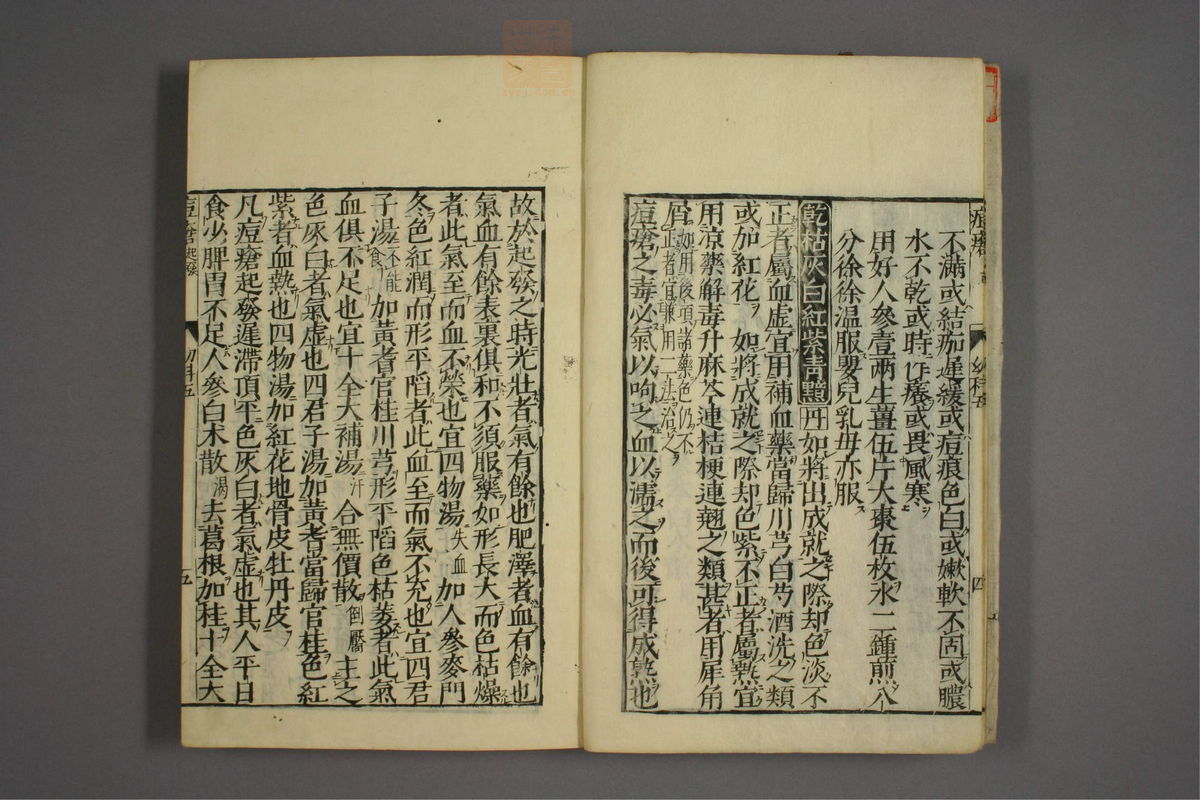 痘瘡
幼科五
四
不滿或結痂遲緩或痘痕色白或嫩軟不固或膿
水不乾或時作癢或畏風寒
用好人參壹兩生薑伍片大棗伍枚水二鍾煎八
分徐徐温服嬰兒乳母亦服
乾枯灰白紅紫青黯 丹 如將出成就之際却色淡不
正者屬血虛宜用補血藥當歸川芎白芍酒洗之類
或加紅花 如將成就之際却色紫不正者屬熱宜
用涼藥解毒升麻芩連桔梗連翹之類甚者用犀角
屑 如用後項諸藥色仍不
正者宜兼用二法治之
痘瘡之毒必氣以呴之血以濡之而後可得成熟也
故於起發之時光壯者氣有餘也肥澤者血有餘也
氣血有餘表裏俱和不須服藥如形長大而色枯燥
者此氣至而血不榮也宜四物湯 失血 加人參麥門
冬色紅潤而形平陷者此血至而氣不充也宜四君
子湯 不能食 加黃耆官桂川芎形平陷色枯萎者此氣
血俱不足也宜十全大補湯 汗 合無價散 倒靨 主之
色灰白者氣虛也四君子湯加黃耆當歸官桂色紅
紫者血熱也四物湯加紅花地骨皮牡丹皮
凡痘瘡起發遲滯頂平色灰白者氣虛也其人平日
食少脾胃不足人參白朮散 渴 去葛根加桂十全大
痘瘡 起發
幼科五
五